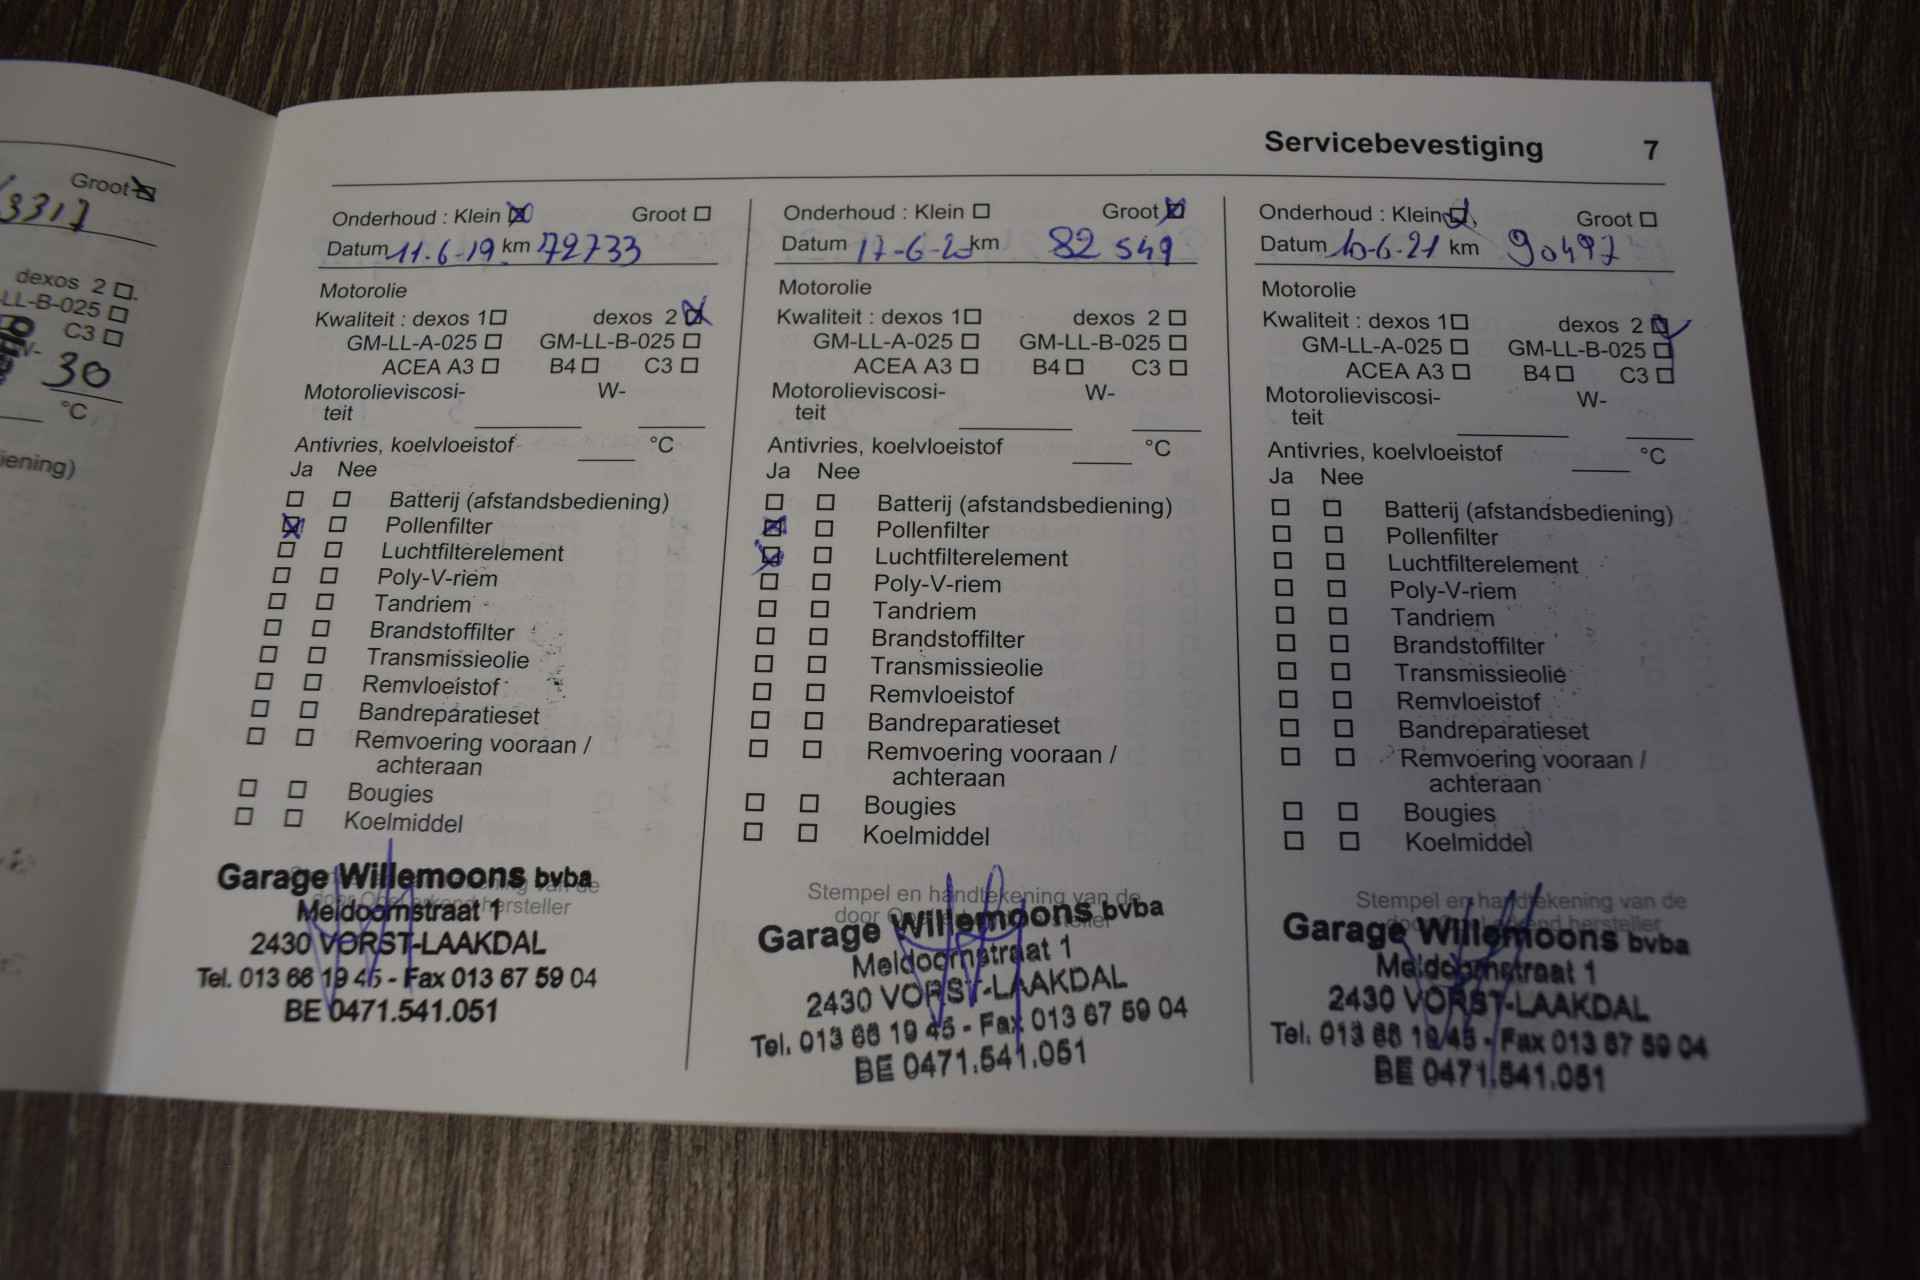 Groot
3317
dexos 2
LL-B-025
C3
W- 30
°C
iening)
Servicebevestiging 7
Onderhoud : Klein Groot
Datum 11-6-19 km 72733
Motorolie
Kwaliteit : dexos 1 dexos 2
GM-LL-A-025 GM-LL-B-025
ACEA A3 B4 C3
Motorolieviscosi- W-
teit
Antivries, koelvloeistof °C
Ja Nee
Batterij (afstandsbediening)
Pollenfilter
Luchtfilterelement
Poly-V-riem
Tandriem
Brandstoffilter
Transmissieolie
Remvloeistof
Bandreparatieset
Remvoering vooraan /
achteraan
Bougies
Koelmiddel
Garage Willemoons bvba
Meldoornstraat 1
2430 VORST-LAAKDAL
Tel. 013 66 19 45 - Fax 013 67 59 04
BE 0471.541.051
Onderhoud : Klein Groot
Datum 17-6-20 km 82 549
Motorolie
Kwaliteit : dexos 1 dexos 2
GM-LL-A-025 GM-LL-B-025
ACEA A3 B4 C3
Motorolieviscosi- W-
teit
Antivries, koelvloeistof °C
Ja Nee
Batterij (afstandsbediening)
Pollenfilter
Luchtfilterelement
Poly-V-riem
Tandriem
Brandstoffilter
Transmissieolie
Remvloeistof
Bandreparatieset
Remvoering vooraan /
achteraan
Bougies
Koelmiddel
Stempel en handtekening van de
door
Garage Willemoons bvba
Meldoornstraat 1
2430 VORST-LAAKDAL
Tel. 013 66 19 45 - Fax 013 67 59 04
BE 0471.541.051
Onderhoud : Klein Groot
Datum 10-6-21 km 90497
Motorolie
Kwaliteit : dexos 1 dexos 2
GM-LL-A-025 GM-LL-B-025
ACEA A3 B4 C3
Motorolieviscosi- W-
teit
Antivries, koelvloeistof °C
Ja Nee
Batterij (afstandsbediening)
Pollenfilter
Luchtfilterelement
Poly-V-riem
Tandriem
Brandstoffilter
Transmissieolie
Remvloeistof
Bandreparatieset
Remvoering vooraan /
achteraan
Bougies
Koelmiddel
Stempel en handtekening van de
hersteller
Garage Willemoons bvba
Meldoornstraat 1
2430 VORST-LAAKDAL
Tel. 013 66 19 45 - Fax 013 67 59 04
BE 0471.541.051